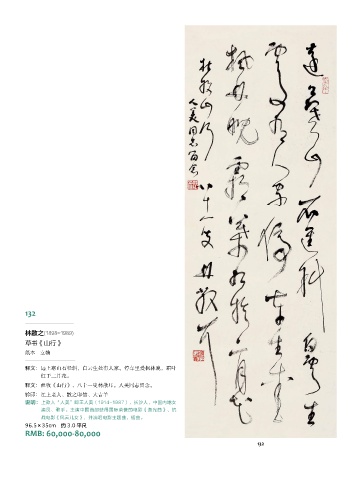 远上寒山石径斜 白云生
处有人家 停车坐爱
枫林晚 霜叶红于二月花
杜牧山行 八十一叟林散耳
人美同志留念
132
林散之(1898~1989)
草书《山行》
纸本 立轴
释文:远上寒山石径斜,白云生处有人家。停车坐爱枫林晚,霜叶
红于二月花。
款识:杜牧《山行》。八十一叟林散耳。人美同志留念。
说明:上款人“人美”即王人美(1914~1987),
96.5×35cm 约 3.0 平尺
RMB: 60,000-80,000